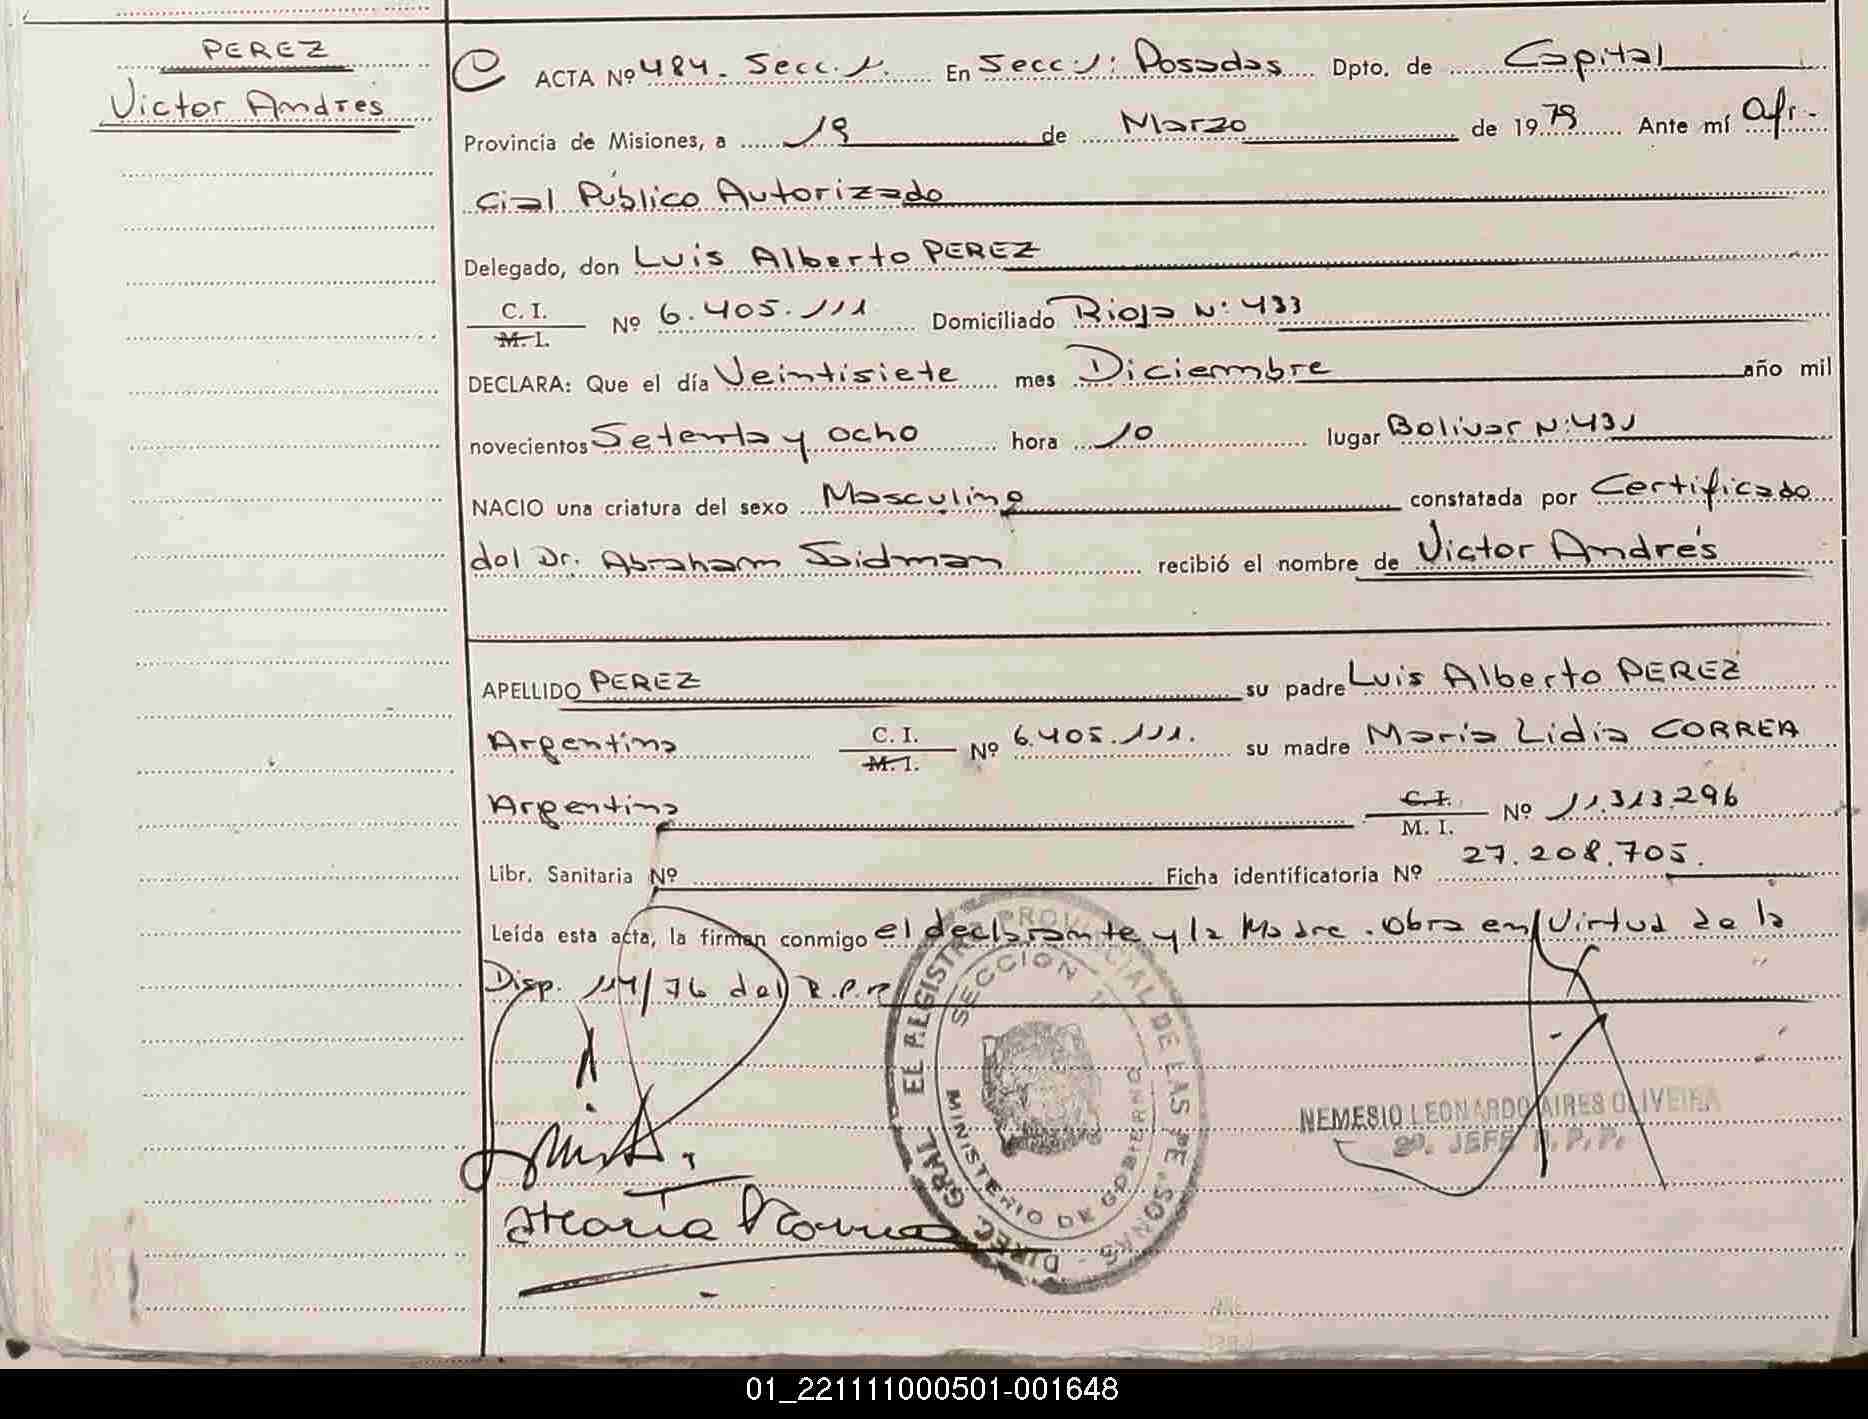 PEREZ
Victor Andres
ACTA Nº 484. Secc. 1. En Secc 1: Posadas Dpto. de Capital
Provincia de Misiones, a 19 de Marzo de 1979 Ante mí Ofi-
cial Público Autorizado
Delegado, don Luis Alberto PEREZ
C. I.
M. I. Nº 6.405.111 Domiciliado Rioja Nº 433
DECLARA: Que el día Veintisiete mes Diciembre año mil
novecientos Setenta y ocho hora 10 lugar Bolivar Nº 431
NACIO una criatura del sexo Masculino constatada por Certificado
del Dr. Abraham Sidman recibió el nombre de Victor Andrés
APELLIDO PEREZ su padre Luis Alberto PEREZ
Argentino C. I.
M. I. Nº 6.405.111. su madre Maria Lidia CORREA
Argentina C. I.
M. I. Nº 11.313.296
Libr. Sanitaria Nº Ficha identificatoria Nº 27.208.705.
Leída esta acta, la firman conmigo el declarante y la Madre. Obra en Virtud de la
Disp. 114/76 del R.P.P
DIREC. GRAL. EL REGISTRO PROVINCIAL DE LAS PERSONAS
SECCION 1º
MINISTERIO DE GOBIERNO
NEMESIO LEONARDO AIRES OLIVEIRA
JEFE R. P. P.
Maria Correa
01_221111000501-001648